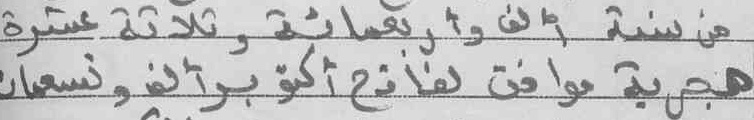 من سنة ألف وأربعمائة وثلاثة عشرة
هجرية موافق لفاتح أكتوبر ألف وتسعمائة